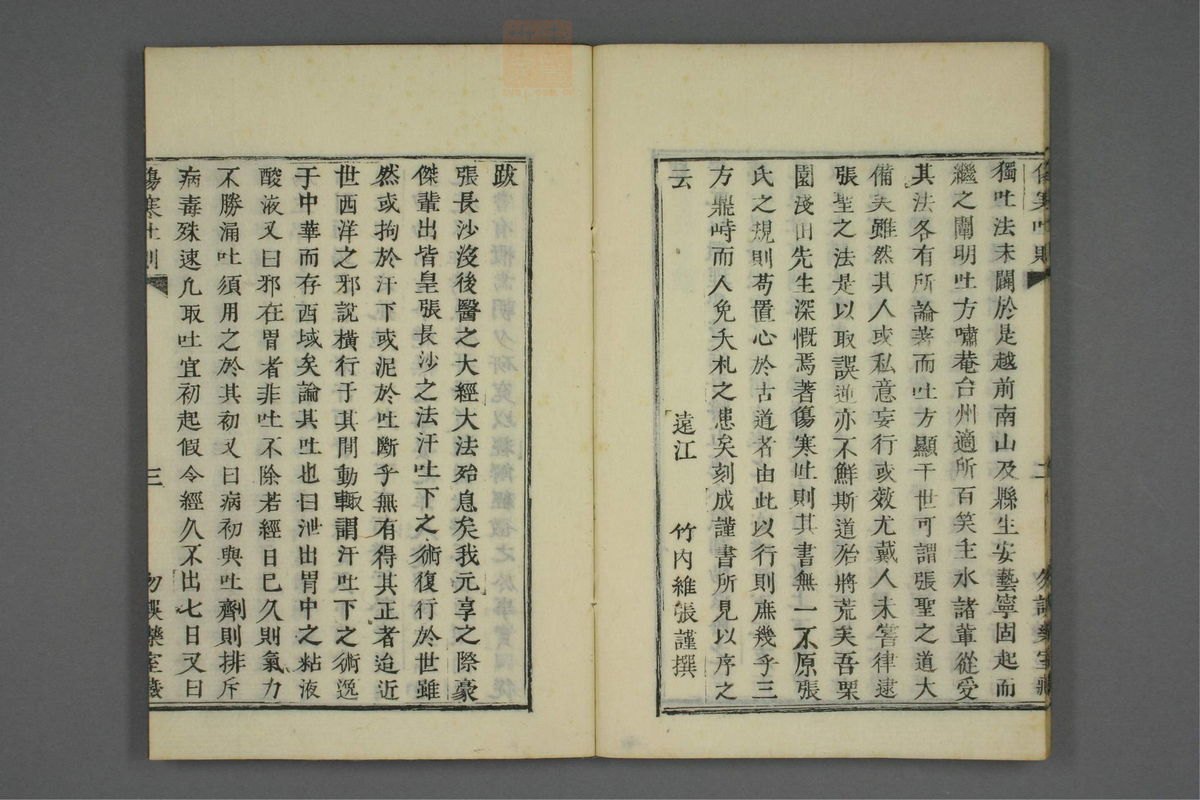 傷寒吐則
二
勿誤藥室藏
獨吐法未闢於是越前南山及縣生安藝寧固起而
繼之闡明吐方嘯菴台州適所百笑主水諸輩從受
其法各有所論著而吐方顯干世可謂張聖之道大
備矣雖然其人或私意妄行或效尤戴人未嘗律逮
張聖之法是以取誤逆亦不鮮斯道殆將荒矣吾栗
園淺田先生深慨焉著傷寒吐則其書無一不原張
氏之規則苟置心於古道者由此以行則庶幾乎三
方鼎峙而人免夭札之患矣刻成謹書所見以序之
云
遠江 竹內維張謹撰
跋
張長沙沒後醫之大經大法殆息矣我元享之際豪
傑輩出皆皇張長沙之法汗吐下之術復行於世雖
然或拘於汗下或泥於吐斷乎無有得其正者迨近
世西洋之邪說橫行于其間動輒謂汗吐下之術逸
于中華而存西域矣論其吐也曰泄出胃中之粘液
酸液又曰邪在胃者非吐不除若經日已久則氣力
不勝漏吐須用之於其初又曰病初與吐劑則排斥
病毒殊速凡取吐宜初起假令經久不出七日又曰
傷寒吐則
三
勿誤藥室藏